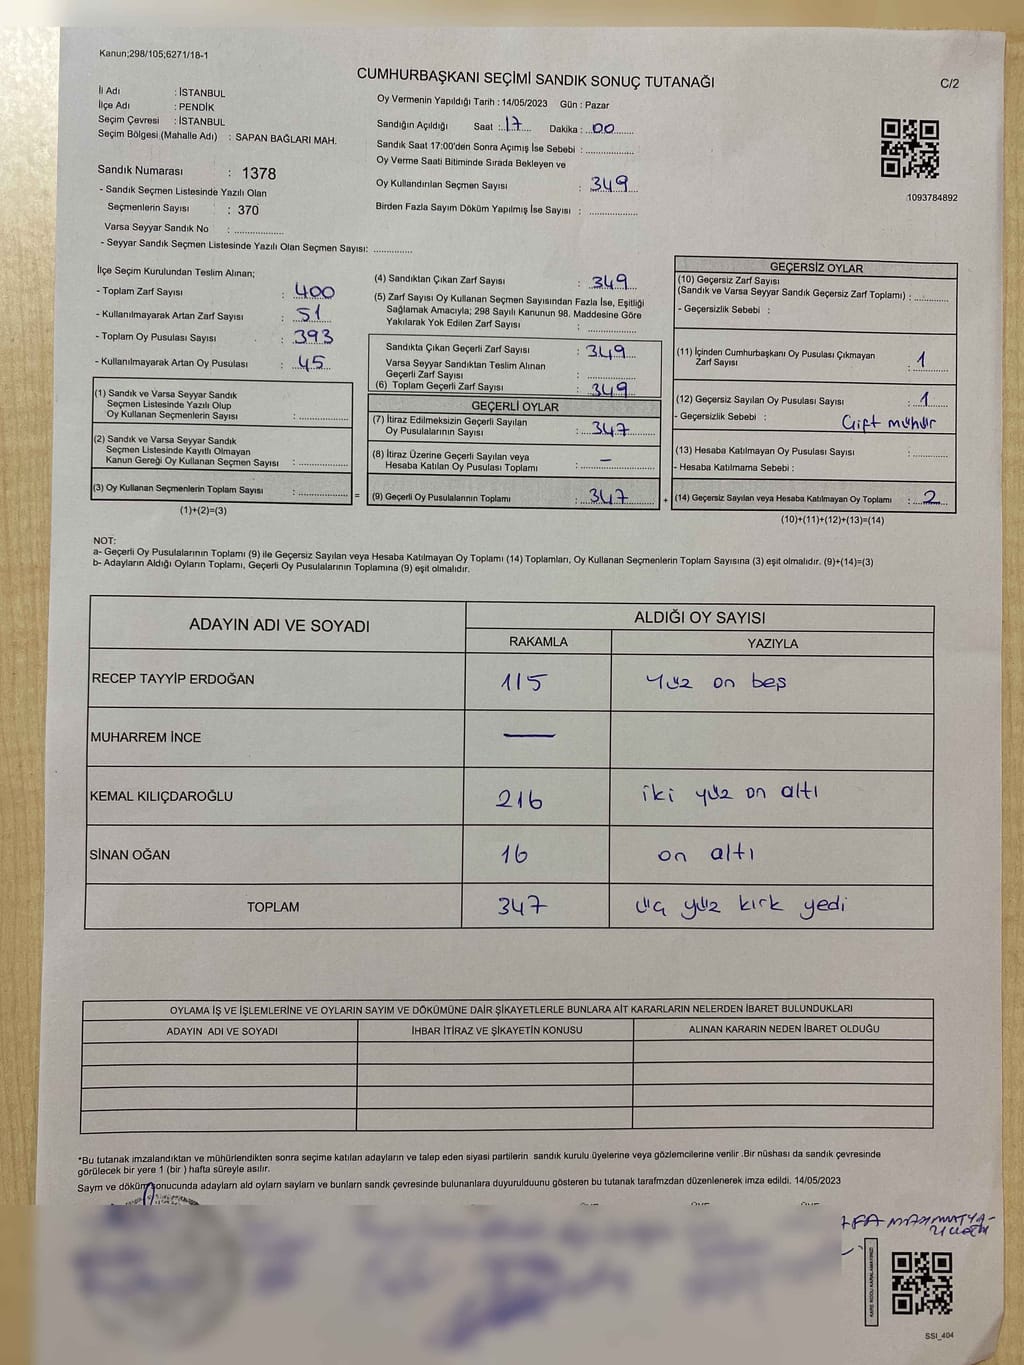 Kanun;298/105;6271/18-1
CUMHURBAŞKANI SEÇİMİ SANDIK SONUÇ TUTANAĞI
C/2
İl Adı : İSTANBUL
İlçe Adı : PENDİK
Seçim Çevresi : İSTANBUL
Seçim Bölgesi (Mahalle Adı) : SAPAN BAĞLARI MAH.
Sandık Numarası : 1378
- Sandık Seçmen Listesinde Yazılı Olan
Seçmenlerin Sayısı : 370
Varsa Seyyar Sandık No : ...............
- Seyyar Sandık Seçmen Listesinde Yazılı Olan Seçmen Sayısı: ............
Oy Vermenin Yapıldığı Tarih : 14/05/2023 Gün : Pazar
Sandığın Açıldığı Saat : 17 Dakika : 00
Sandık Saat 17:00'den Sonra Açımış İse Sebebi : ...............
Oy Verme Saati Bitiminde Sırada Bekleyen ve
Oy Kullandırılan Seçmen Sayısı : 349
Birden Fazla Sayım Döküm Yapılmış İse Sayısı : ...............
1093784892
İlçe Seçim Kurulundan Teslim Alınan;
- Toplam Zarf Sayısı : 400
- Kullanılmayarak Artan Zarf Sayısı : 51
- Toplam Oy Pusulası Sayısı : 393
- Kullanılmayarak Artan Oy Pusulası : 45
(1) Sandık ve Varsa Seyyar Sandık
Seçmen Listesinde Yazılı Olup
Oy Kullanan Seçmenlerin Sayısı : ...............
(2) Sandık ve Varsa Seyyar Sandık
Seçmen Listesinde Kayıtlı Olmayan
Kanun Gereği Oy Kullanan Seçmen Sayısı : ...............
(3) Oy Kullanan Seçmenlerin Toplam Sayısı : ...............
(1)+(2)=(3)
=
(4) Sandıktan Çıkan Zarf Sayısı : 349
(5) Zarf Sayısı Oy Kullanan Seçmen Sayısından Fazla İse, Eşitliği
Sağlamak Amacıyla; 298 Sayılı Kanunun 98. Maddesine Göre
Yakılarak Yok Edilen Zarf Sayısı : ...............
Sandıkta Çıkan Geçerli Zarf Sayısı : 349
Varsa Seyyar Sandıktan Teslim Alınan
Geçerli Zarf Sayısı : ...............
(6) Toplam Geçerli Zarf Sayısı : 349
GEÇERLİ OYLAR
(7) İtiraz Edilmeksizin Geçerli Sayılan
Oy Pusulalarının Sayısı : 347
(8) İtiraz Üzerine Geçerli Sayılan veya
Hesaba Katılan Oy Pusulası Toplamı : –
(9) Geçerli Oy Pusulalarının Toplamı : 347
+
GEÇERSİZ OYLAR
(10) Geçersiz Zarf Sayısı
(Sandık ve Varsa Seyyar Sandık Geçersiz Zarf Toplamı) : ............
- Geçersizlik Sebebi :
(11) İçinden Cumhurbaşkanı Oy Pusulası Çıkmayan
Zarf Sayısı : 1
(12) Geçersiz Sayılan Oy Pusulası Sayısı : 1
- Geçersizlik Sebebi : Çift mühür
(13) Hesaba Katılmayan Oy Pusulası Sayısı : ............
- Hesaba Katılmama Sebebi :
(14) Geçersiz Sayılan veya Hesaba Katılmayan Oy Toplamı : 2
(10)+(11)+(12)+(13)=(14)
NOT:
a- Geçerli Oy Pusulalarının Toplamı (9) ile Geçersiz Sayılan veya Hesaba Katılmayan Oy Toplamı (14) Toplamları, Oy Kullanan Seçmenlerin Toplam Sayısına (3) eşit olmalıdır. (9)+(14)=(3)
b- Adayların Aldığı Oyların Toplamı, Geçerli Oy Pusulalarının Toplamına (9) eşit olmalıdır.
ADAYIN ADI VE SOYADI
ALDIĞI OY SAYISI
RAKAMLA YAZIYLA
RECEP TAYYİP ERDOĞAN 115 yüz on beş
MUHARREM İNCE —
KEMAL KILIÇDAROĞLU 216 iki yüz on altı
SİNAN OĞAN 16 on altı
TOPLAM 347 üç yüz kırk yedi
OYLAMA İŞ VE İŞLEMLERİNE VE OYLARIN SAYIM VE DÖKÜMÜNE DAİR ŞİKAYETLERLE BUNLARA AİT KARARLARIN NELERDEN İBARET BULUNDUKLARI
ADAYIN ADI VE SOYADI İHBAR İTİRAZ VE ŞİKAYETİN KONUSU ALINAN KARARIN NEDEN İBARET OLDUĞU
*Bu tutanak imzalandıktan ve mühürlendikten sonra seçime katılan adayların ve talep eden siyasi partilerin sandık kurulu üyelerine veya gözlemcilerine verilir .Bir nüshası da sandık çevresinde
görülecek bir yere 1 (bir ) hafta süreyle asılır.
Sayım ve döküm sonucunda adayların ald oyların sayların ve bunların sandk çevresinde bulunanlara duyurulduunu gösteren bu tutanak tarafmzdan düzenlenerek imza edildi. 14/05/2023
KARE KODU KARALAMAYINIZ!
SSI_404